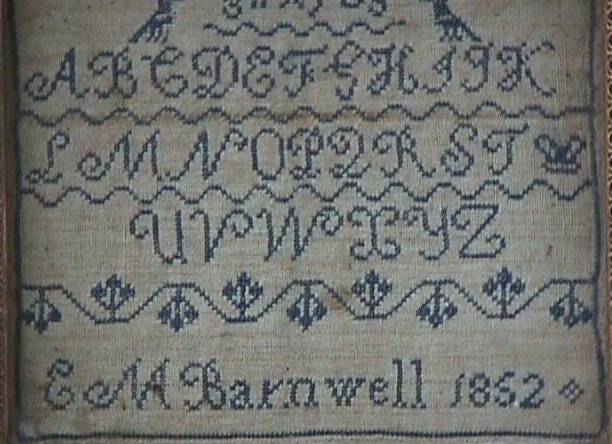 ABCDEFGHIJK
LMNOPQRST
UVWXYZ
E M Barnwell 1852